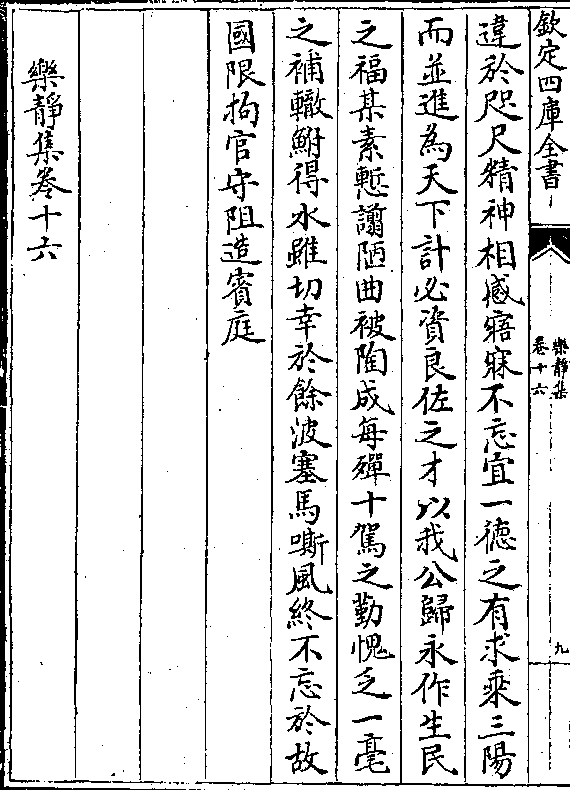 欽定四庫全書
樂靜集
卷十六
九
違於咫尺精神相感寤寐不忘宜一德之有求乗三陽
而並進為天下計必資良佐之才以我公歸永作生民
之福某素慙謭陋曲被陶成每殫十駕之勤愧乏一毫
之補轍鮒得水雖切幸於餘波塞馬嘶風終不忘於故
國限拘官守阻造賓庭
樂靜集卷十六